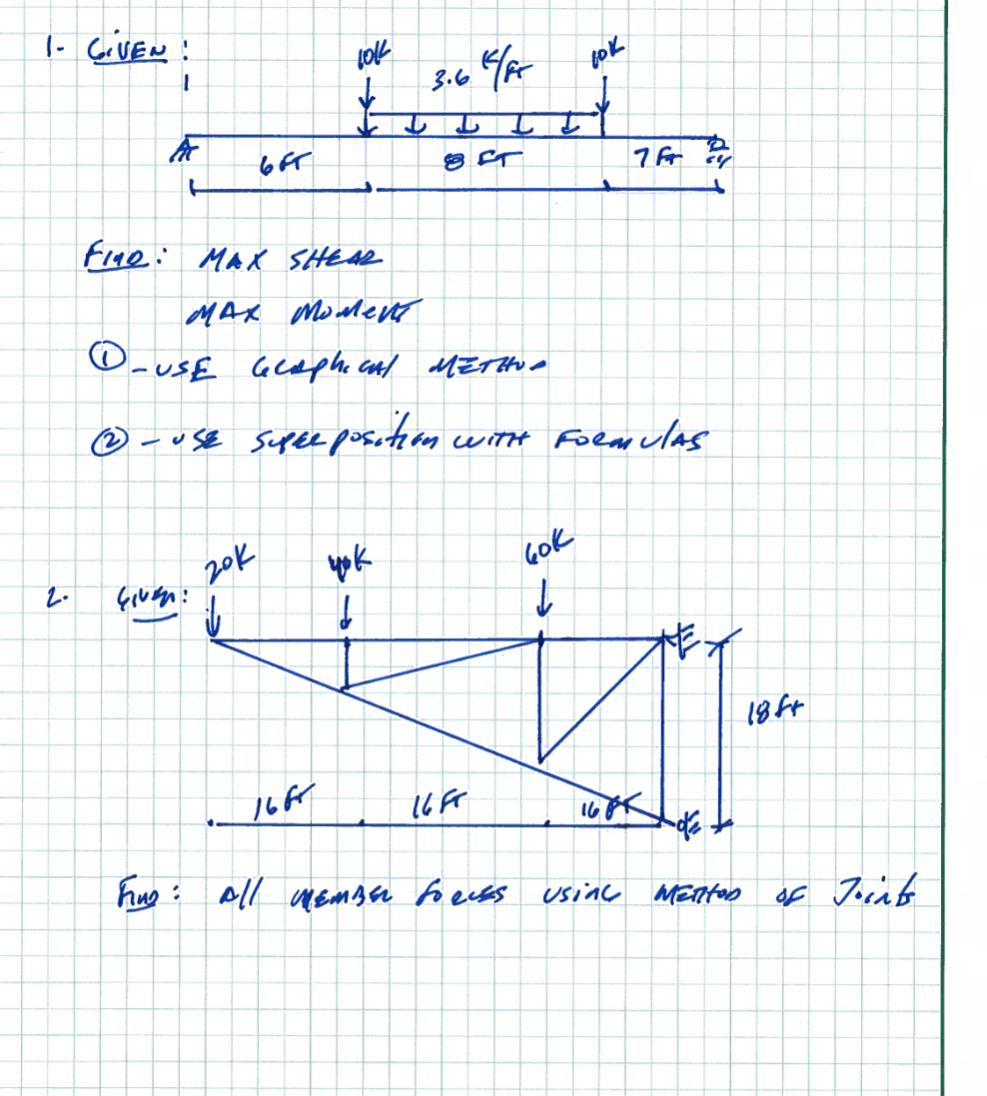 1- GIVEN :
10K 3.6 K/FT 10K
6 FT 8 FT 7 FT
FIND: MAX SHEAR
MAX MOMENT
① - USE GRAPHICAL METHOD
② - USE SUPERPOSITION WITH FORMULAS
20K 40K 60K
2. GIVEN:
18 ft
16 FT 16 FT 16 FT
FIND: All MEMBER FORCES USING METHOD OF JOINTS